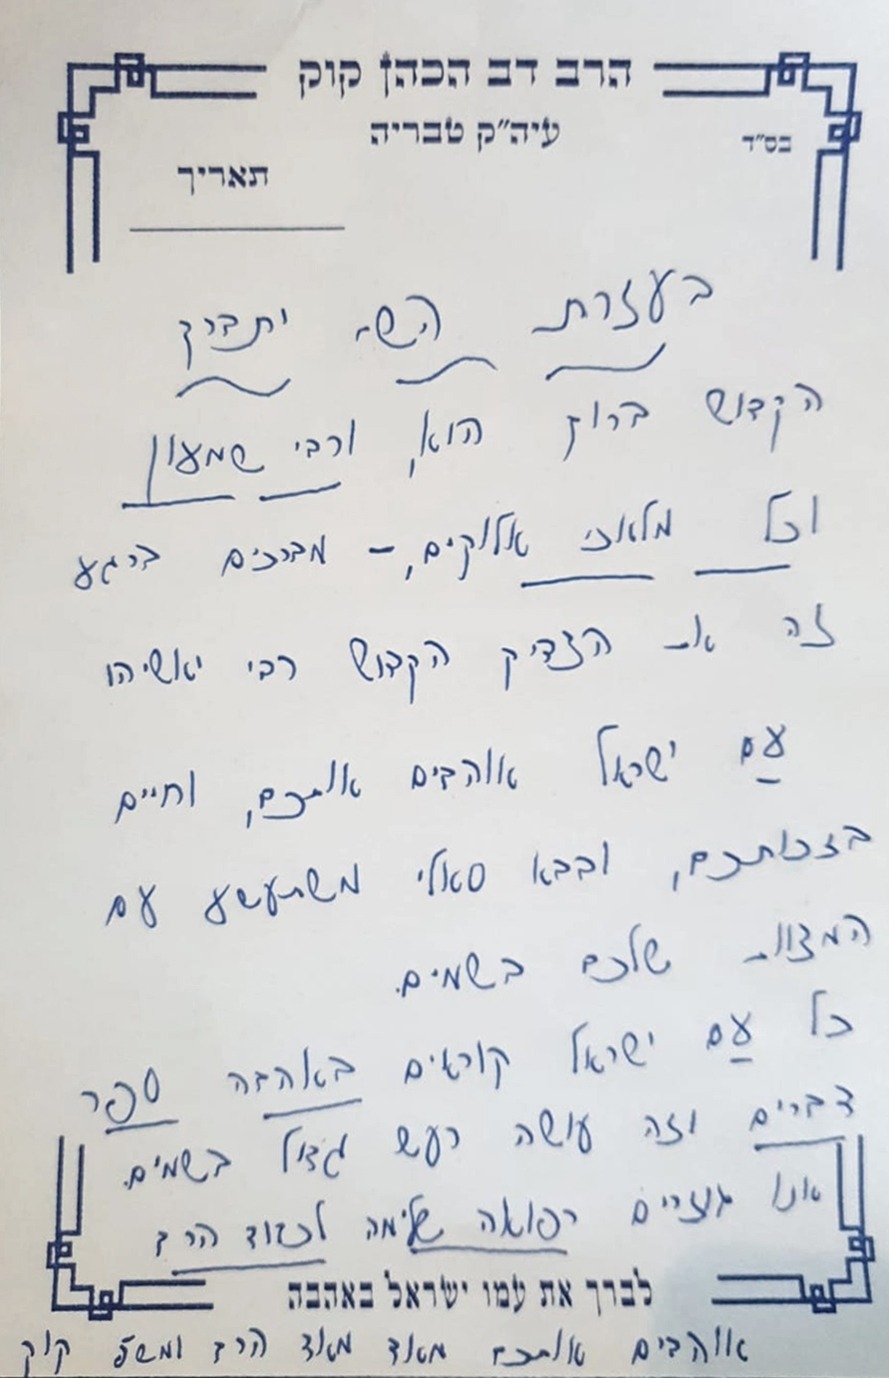 הרב דב הכהן קוק
עיה"ק טבריה
בס"ד
תאריך
בעזרת הש' יתברך
הקדוש ברוך הוא, ורבי שמעון
וכל מלאכי אלוקים, - מברכים ברגע
זה את הצדיק הקדוש רבי יאשיהו
עַם ישראל אוהבים אותכם, וחיים
בזכותכם, ובבא סאלי משתעשע עם
המצוות שלכם בשמים.
כל עַם ישראל קוראים באהבה ספר
דברים וזה עושה רעש גדול בשמים.
אנו גוזרים רפואה שלימה לכבוד הרב
לברך את עמו ישראל באהבה
אוהבים אותכם מאוד מאוד הרב ומשפ' קוק